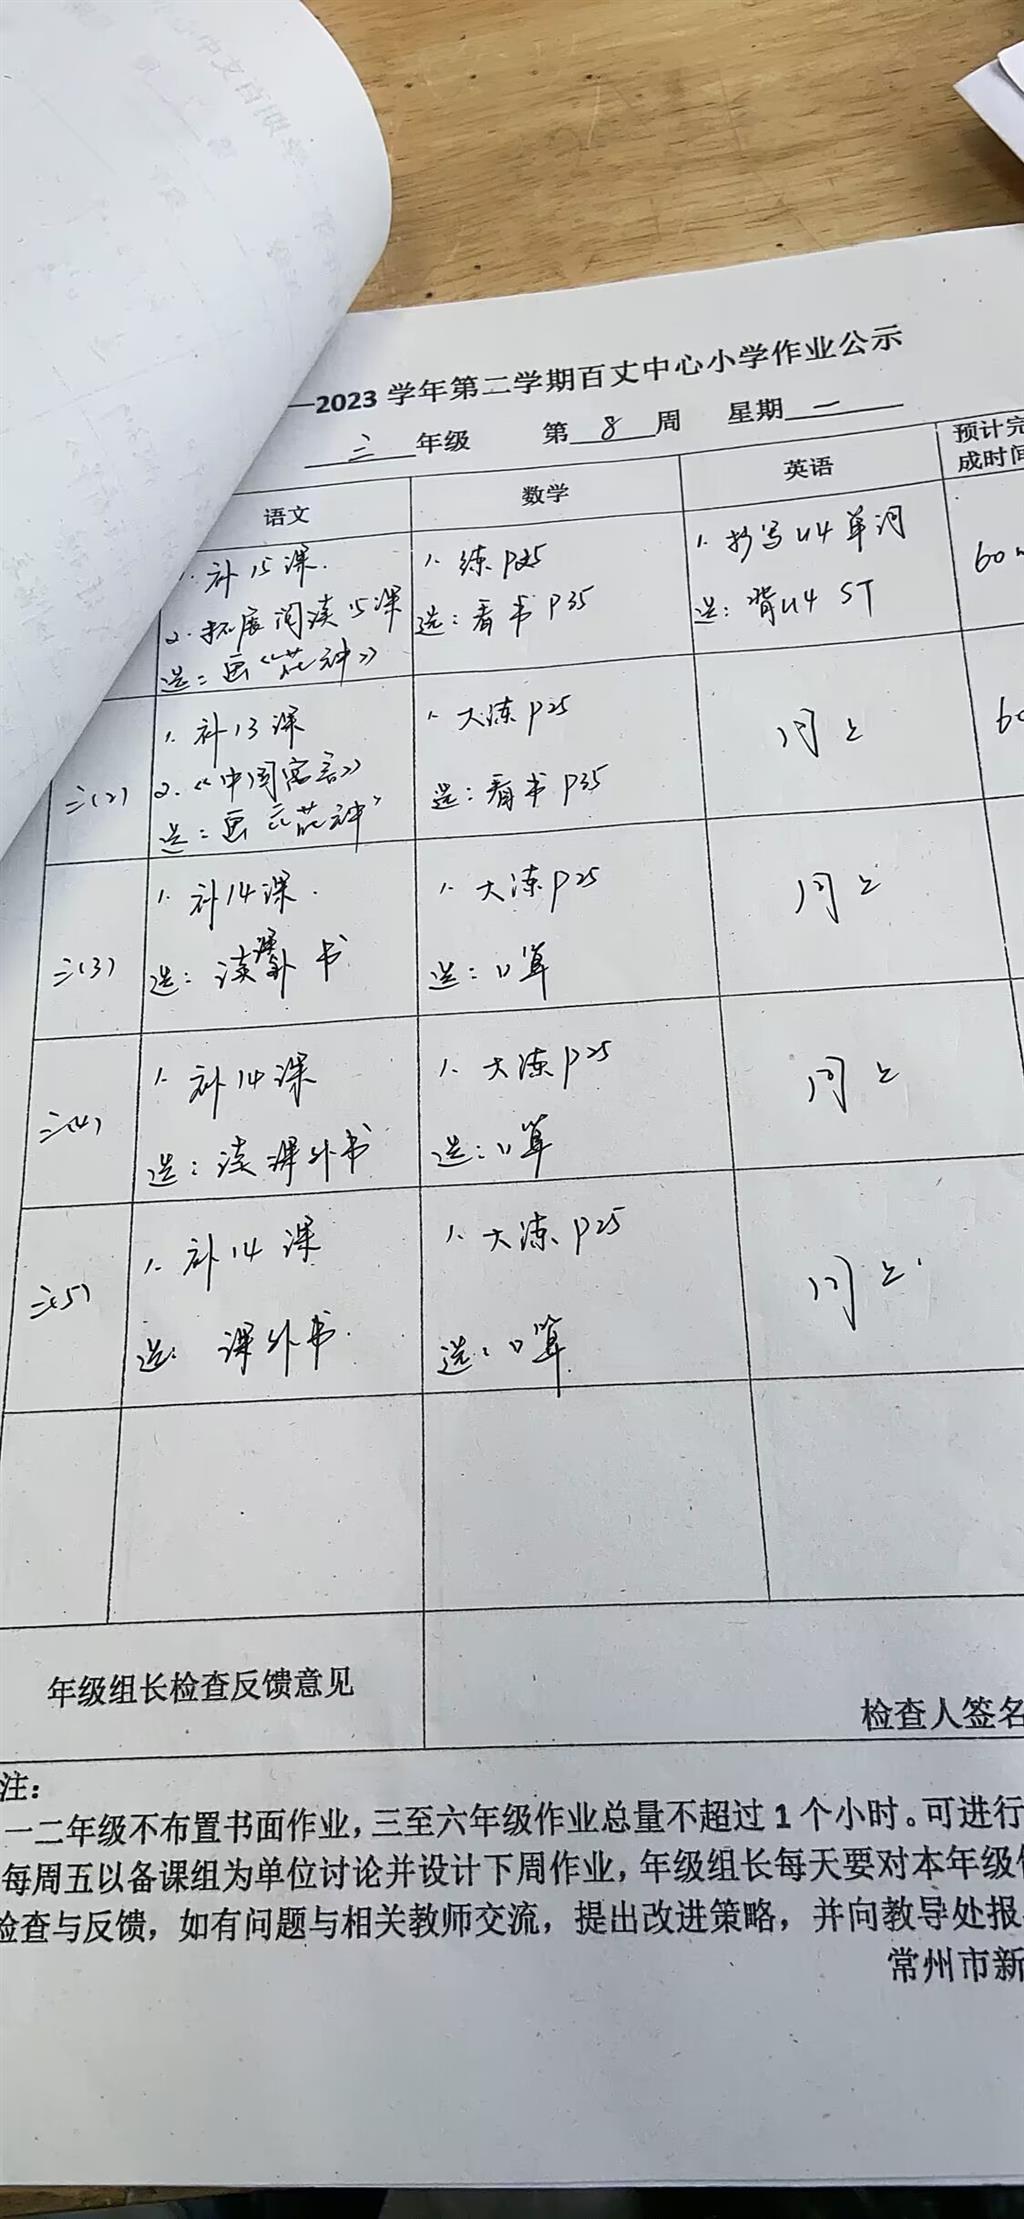 —2023 学年第二学期百丈中心小学作业公示
三 年级 第 8 周 星期 一
语文 数学 英语 预计完
成时间
1. 补15课. 1. 练P25 1. 抄写U4单词 60
2. 拓展阅读15课 选：看书P35 选：背U4 ST
选：画《花钟》
三(2) 1. 补13课 1. 大练P25 同上 60
2.《中国寓言》 选：看书P35
选：画《花钟》
三(3) 1. 补14课. 1. 大练P25 同上
选：读课外书 选：口算
三(4) 1. 补14课 1. 大练P25 同上
选：读课外书 选：口算
三(5) 1. 补14课 1. 大练P25 同上.
选： 课外书. 选：口算.
年级组长检查反馈意见
检查人签名
注：
一二年级不布置书面作业，三至六年级作业总量不超过1个小时。可进行
每周五以备课组为单位讨论并设计下周作业，年级组长每天要对本年级
检查与反馈，如有问题与相关教师交流，提出改进策略，并向教导处报
常州市新